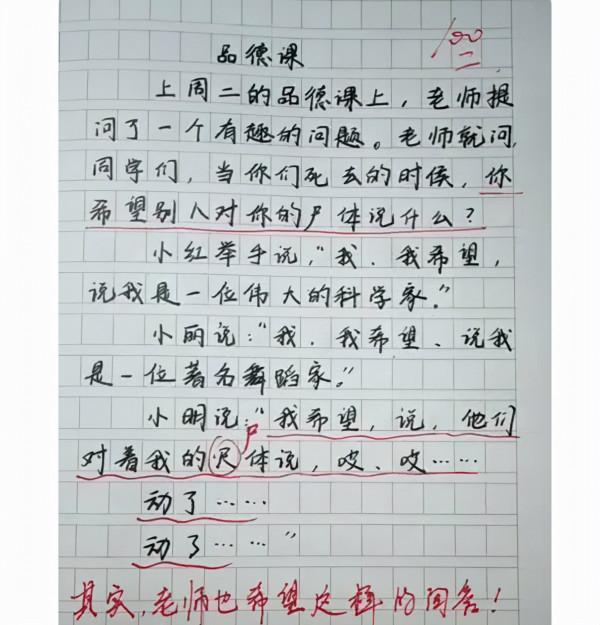 100
品德课
上周二的品德课上，老师提
问了一个有趣的问题。老师就问，
同学们，当你们死去的时候，你
希望别人对你的尸体说什么？
小红举手说，“我．我希望，
说我是一位伟大的科学家。”
小丽说：“我．我希望、说我
是一位著名舞蹈家。”
小明说：“我希望，说，他们
尸
对着我的尺体说，哎、哎……
动了……
动了……”
其实，老师也希望这样的回答！